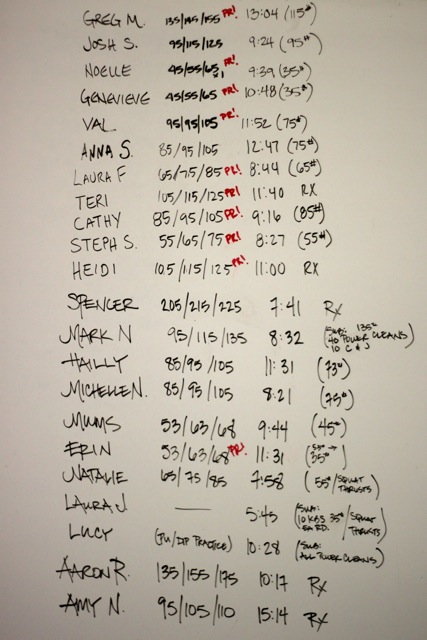 GREG M. 135/145/155 PR! 13:04 (115#)
JOSH S. 95/115/125 9:24 (95#)
NOELLE 45/55/65 x1 PR! 9:39 (35#)
GENEVIEVE 45/55/65 PR! 10:48 (35#)
VAL 95/95/105 PR! 11:52 (75#)
ANNA S. 85/95/105 12:47 (75#)
LAURA F 65/75/85 PR! 8:44 (65#)
TERI 105/115/125 PR! 11:40 RX
CATHY 85/95/105 PR! 9:16 (85#)
STEPH S. 55/65/75 PR! 8:27 (55#)
HEIDI 105/115/125 PR! 11:00 RX
SPENCER 205/215/225 7:41 Rx
MARK N 95/115/135 8:32 (SUB: 135# 40 POWER CLEANS/ 10 C & J)
HAILLY 85/95/105 11:31 (73#)
MICHELLE N. 85/95/105 8:21 (73#)
MUMS 53/63/68 9:44 (45#)
ERIN 53/63/68 PR! 11:31 (53# → 35#)
NATALIE 65/75/85 7:58 (55#/SQUAT THRUSTS)
LAURA J. — 5:45 (SUB: 10 KBS 35#/SQUAT EA RD. THRUSTS)
LUCY (PU/DIP PRACTICE) 10:28 (SUB: ALL POWER CLEANS)
AARON R. 135/155/175 10:17 Rx
AMY N. 95/105/110 15:14 Rx